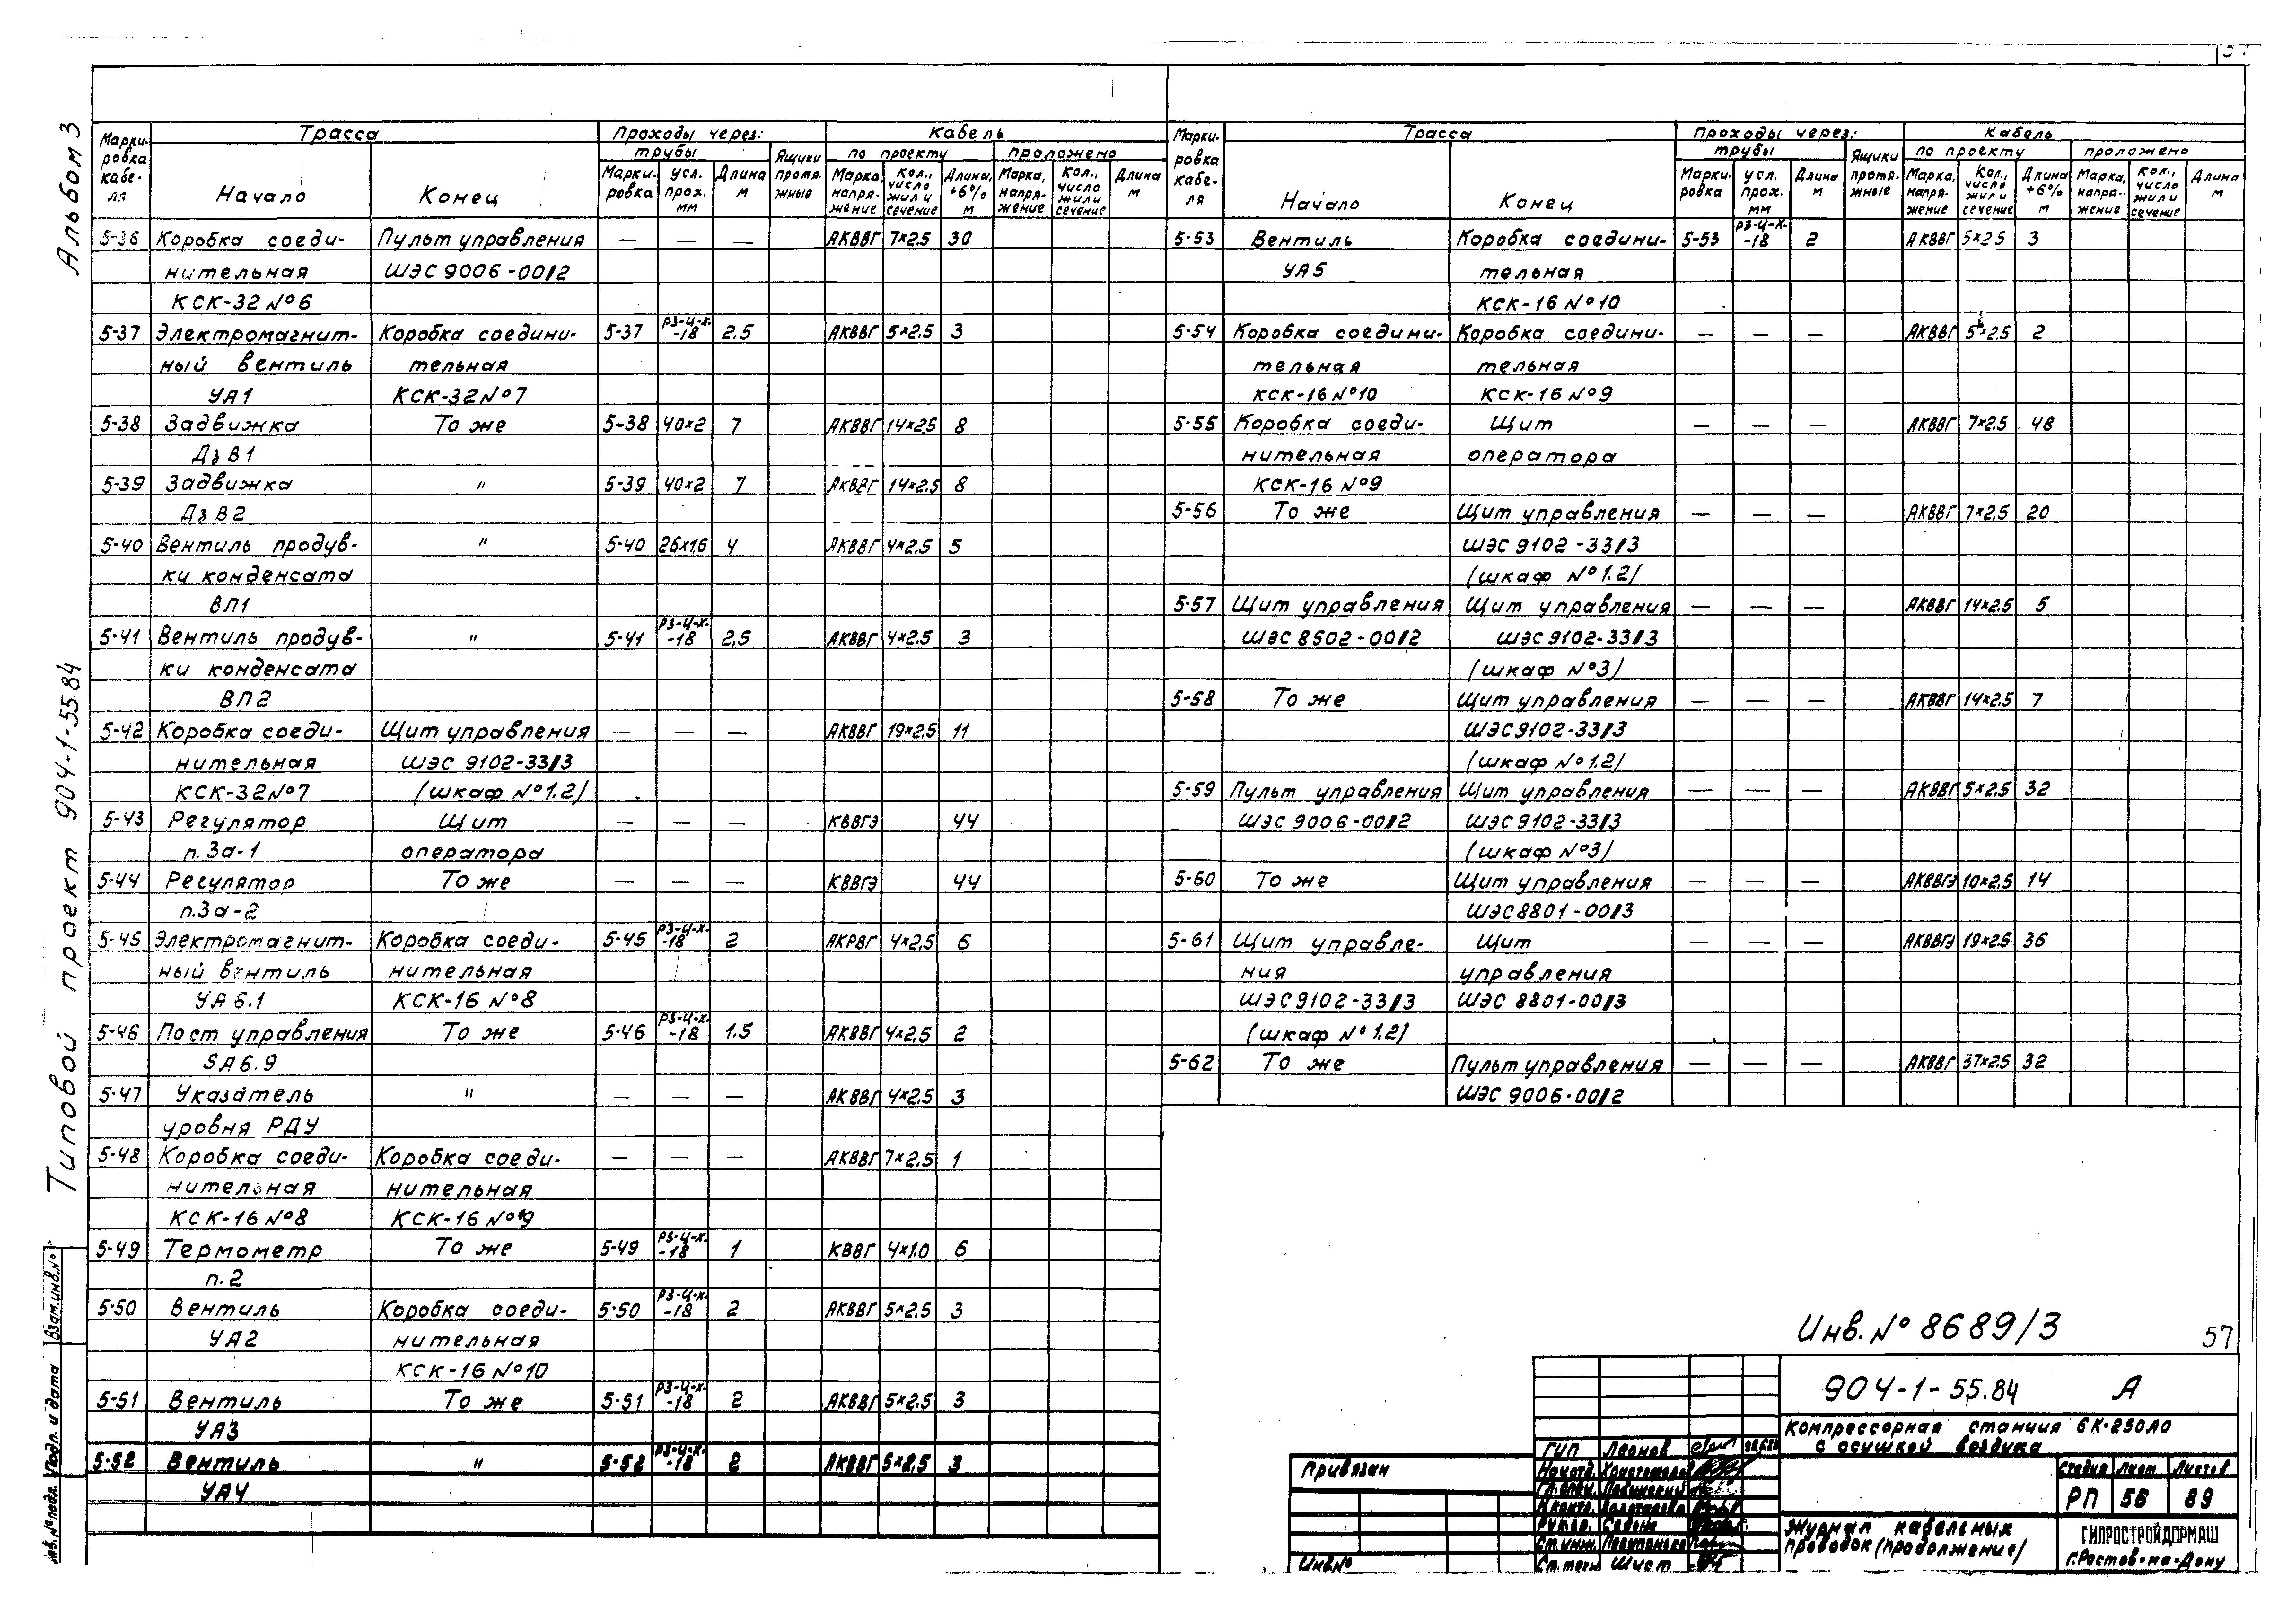 Альбом 3
Типовой проект 904-1-55.84
Марки-ровка кабе-ля | Трасса | Проходы через: | Кабель
трубы | Ящики протя-жные | по проекту | проложено
Начало | Конец | Марки-ровка | усл. прох. мм | Длина м | Марка, напря-жение | Кол., число жил и сечение | Длина, +6% м | Марка, напря-жение | Кол., число жил и сечение | Длина м
5-36 Коробка соеди- Пульт управления — — — АКВВГ 7×2.5 30
нительная ШЭС 9006-00/2
КСК-32 №6
5-37 Электромагнит- Коробка соедини- 5-37 РЗ-Ц-Х-18 2.5 АКВВГ 5×2.5 3
ный вентиль тельная
УА1 КСК-32 №7
5-38 Задвижка То же 5-38 40×2 7 АКВВГ 14×2.5 8
Дз В1
5-39 Задвижка " 5-39 40×2 7 АКВВГ 14×2.5 8
Дз В2
5-40 Вентиль продув- " 5-40 26×1.6 4 АКВВГ 4×2.5 5
ки конденсата
ВП1
5-41 Вентиль продув- " 5-41 РЗ-Ц-Х-18 2,5 АКВВГ 4×2.5 3
ки конденсата
ВП2
5-42 Коробка соеди- Щит управления — — — АКВВГ 19×2.5 11
нительная ШЭС 9102-33/3
КСК-32 №7 (шкаф №1.2)
5-43 Регулятор Щит — — — КВВГЭ 44
п.3а-1 оператора
5-44 Регулятор То же — — — КВВГЭ 44
п.3а-2
5-45 Электромагнит- Коробка соеди- 5-45 РЗ-Ц-Х-18 2 АКРВГ 4×2,5 6
ный вентиль нительная
УА 6.1 КСК-16 №8
5-46 Пост управления То же 5-46 РЗ-Ц-Х-18 1.5 АКВВГ 4×2,5 2
SA6.9
5-47 Указатель " — — — АКВВГ 4×2,5 3
уровня РДУ
5-48 Коробка соеди- Коробка соеди- — — — АКВВГ 7×2.5 1
нительная нительная
КСК-16 №8 КСК-16 №9
5-49 Термометр То же 5-49 РЗ-Ц-Х-18 1 КВВГ 4×1.0 6
п.2
5-50 Вентиль Коробка соеди- 5-50 РЗ-Ц-Х-18 2 АКВВГ 5×2.5 3
УА2 нительная
КСК-16 №10
5-51 Вентиль То же 5-51 РЗ-Ц-Х-18 2 АКВВГ 5×2.5 3
УА3
5-52 Вентиль " 5-52 РЗ-Ц-Х-18 2 АКВВГ 5×2,5 3
УА4
Марки-ровка кабе-ля | Трасса | Проходы через: | Кабель
трубы | Ящики протя-жные | по проекту | проложено
Начало | Конец | Марки-ровка | усл. прох. мм | Длина м | Марка, напря-жение | Кол., число жил и сечение | Длина +6% м | Марка, напря-жение | Кол., число жил и сечение | Длина м
5-53 Вентиль Коробка соедини- 5-53 РЗ-Ц-Х-18 2 АКВВГ 5×2.5 3
УА5 тельная
КСК-16 №10
5-54 Коробка соедини- Коробка соедини- — — — АКВВГ 5×2,5 2
тельная тельная
КСК-16 №10 КСК-16 №9
5-55 Коробка соеди- Щит — — — АКВВГ 7×2.5 48
нительная оператора
КСК-16 №9
5-56 То же Щит управления — — — АКВВГ 7×2.5 20
ШЭС 9102-33/3
(шкаф №1.2)
5-57 Щит управления Щит управления — — — АКВВГ 14×2.5 5
ШЭС 8502-00/2 ШЭС 9102-33/3
(шкаф №3)
5-58 То же Щит управления — — — АКВВГ 14×2.5 7
ШЭС 9102-33/3
(шкаф №1.2)
5-59 Пульт управления Щит управления — — — АКВВГ 5×2.5 32
ШЭС 9006-00/2 ШЭС 9102-33/3
(шкаф №3)
5-60 То же Щит управления — — — АКВВГЭ 10×2.5 14
ШЭС 8801-00/3
5-61 Щит управле- Щит — — — АКВВГЭ 19×2.5 36
ния управления
ШЭС 9102-33/3 ШЭС 8801-00/3
(шкаф №1.2)
5-62 То же Пульт управления — — — АКВВГ 37×2.5 32
ШЭС 9006-00/2
Инв.№ 8689/3 57
904-1-55.84 А
Компрессорная станция 6К-250А0
с осушкой воздуха
ГИП Леонов
Нач.отд.
Н.контр.
Ст.инж.
Ст.техн. Шист
Привязан
Инв№
Стадия Лист Листов
РП 56 89
Журнал кабельных
проводок (продолжение)
ГИПРОСТРОЙДОРМАШ
г.Ростов-на-Дону
Взам.инв.№
Подп. и дата
Инв.№подл.